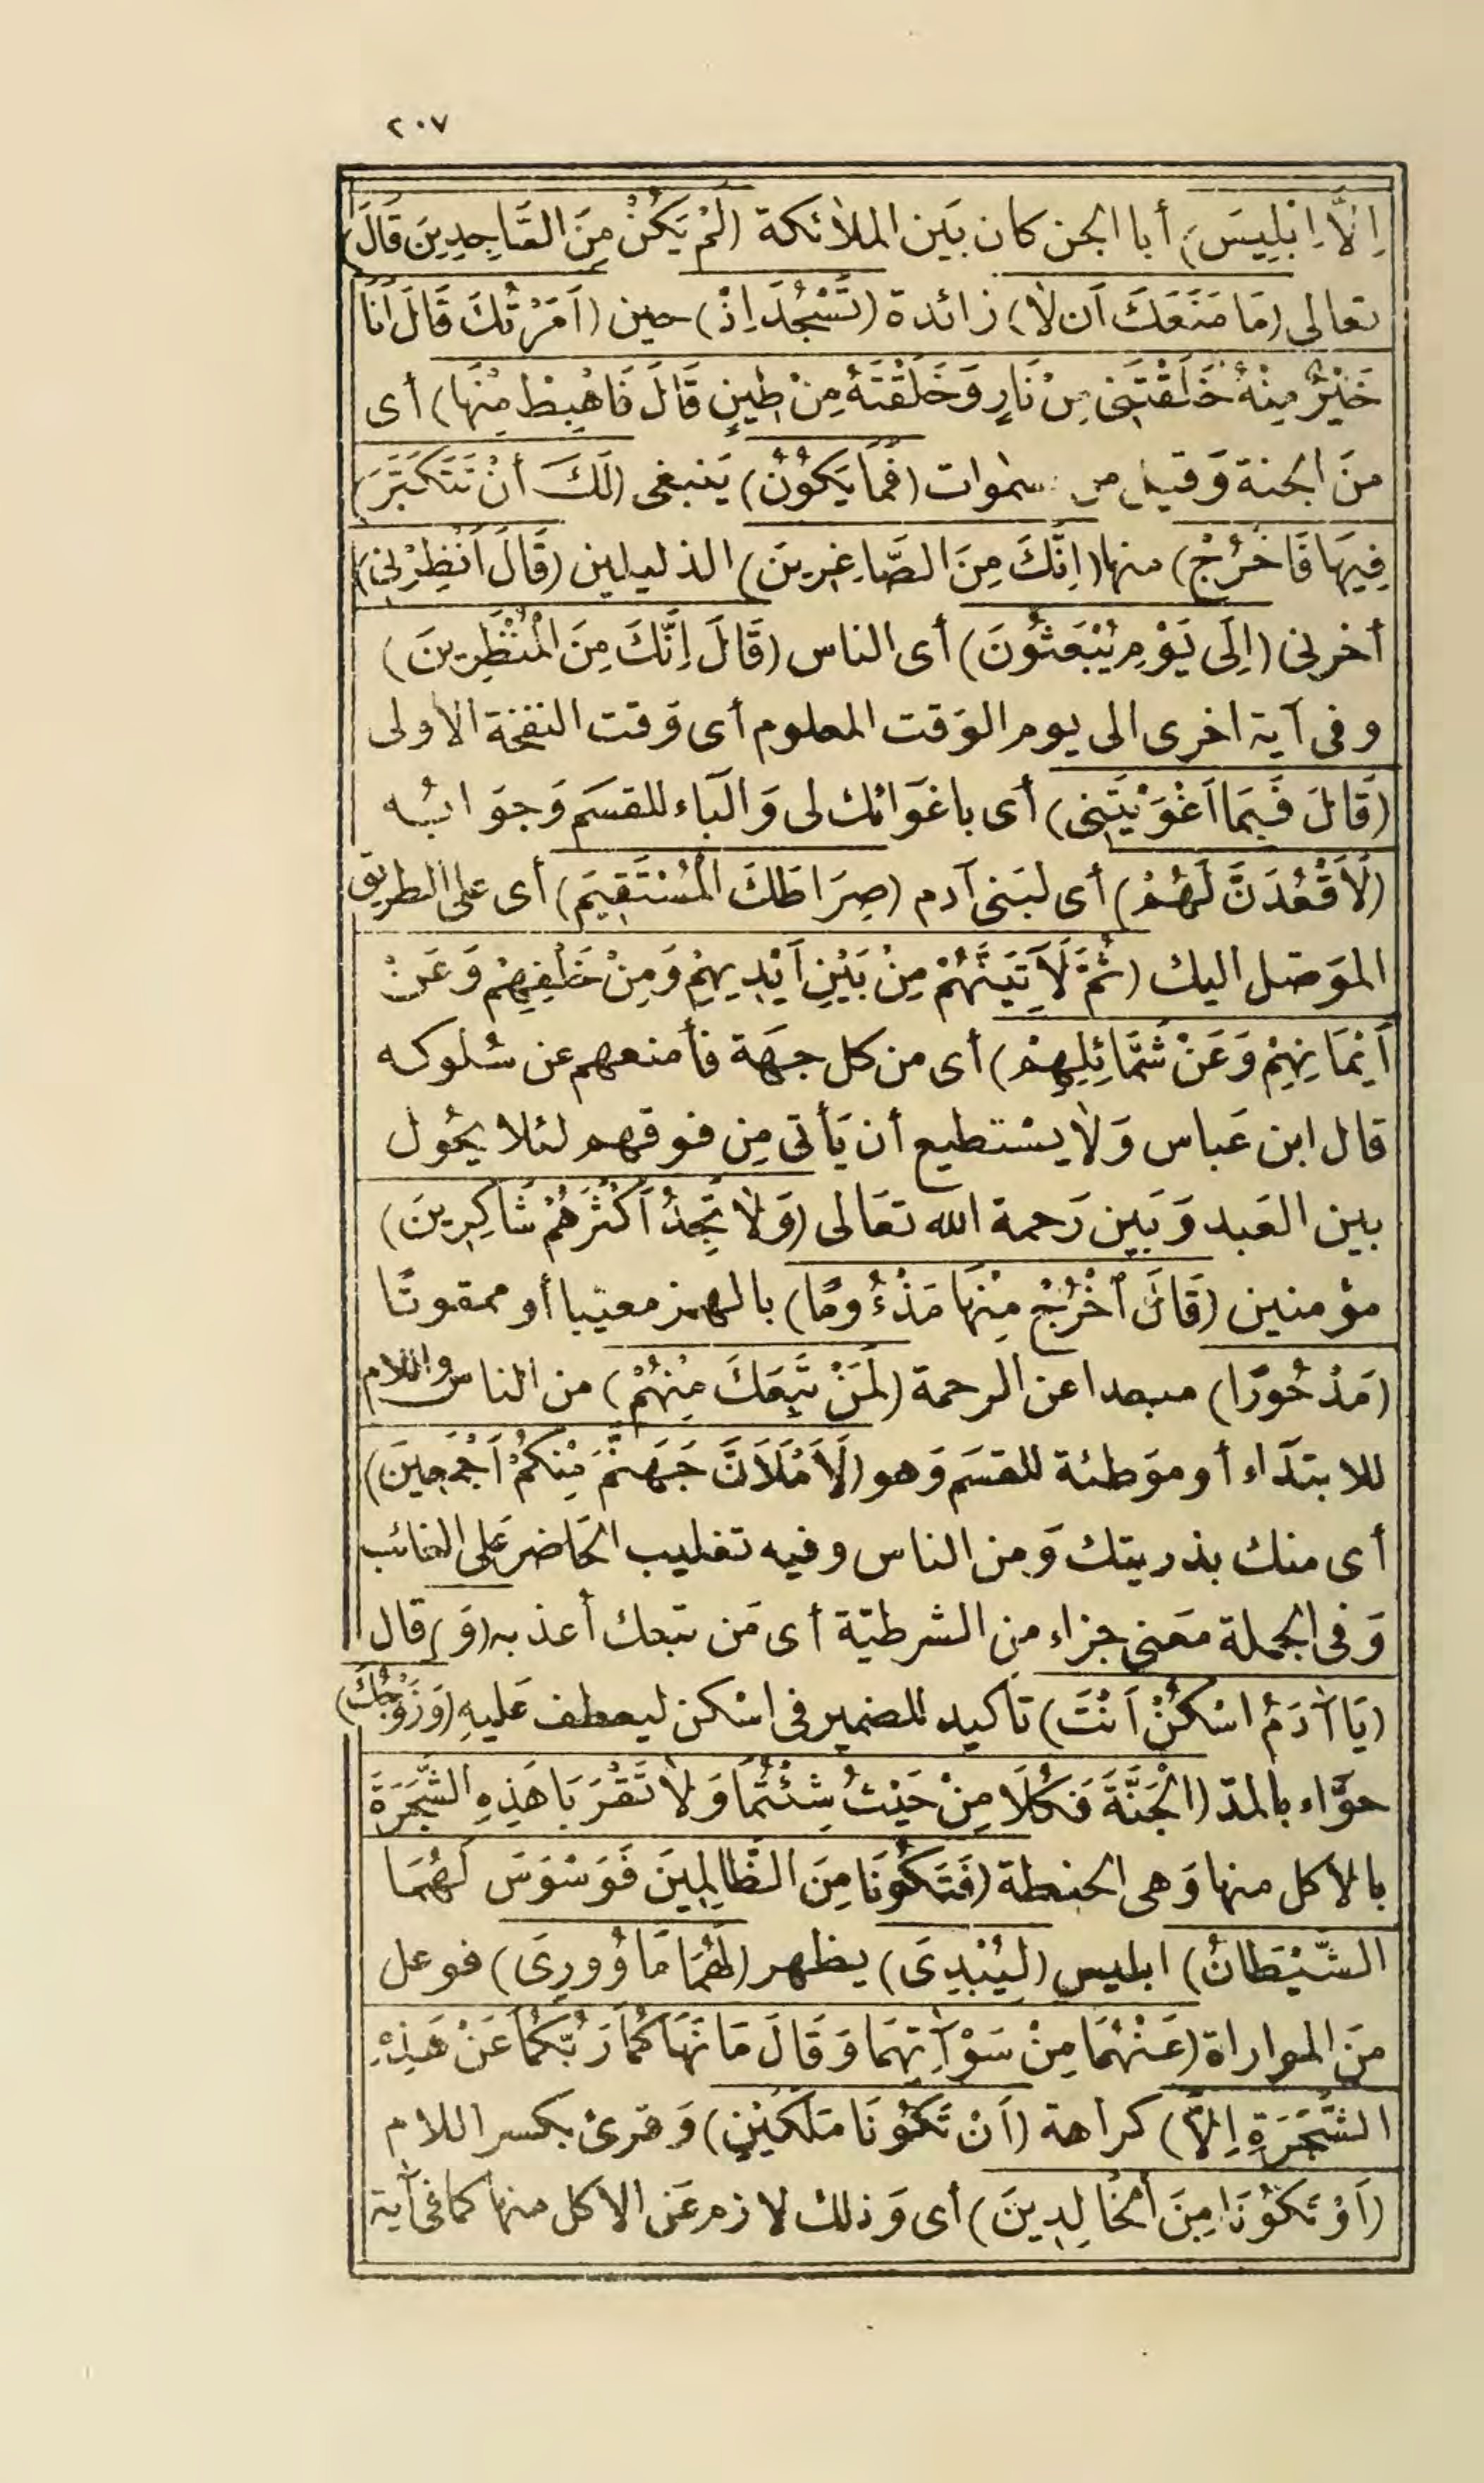 ٢٠٧
اِلَّا اِبْلِيسَ) أبا الجن كان بَين الملائكة (لَمْ يَكُنْ مِنَ السَّاجِدِينَ قَالَ)
تعالى (مَا مَنَعَكَ اَن لَا) زائدة (تَسْجُدَ اِذْ) حين (اَمَرْتُكَ قَالَ اَنَا
خَيْرٌ مِنْهُ خَلَقْتَنِى مِنْ نَارٍ وَخَلَقْتَهُ مِنْ طِينٍ قَالَ فَاهْبِطْ مِنْهَا) أى
منَ الجنة وَقيل من سمٰوات (فَمَا يَكُونُ) يَنبغى (لَكَ أَنْ تَتَكَبَّرَ)
فِيهَا فَاخْرُجْ) منها (اِنَّكَ مِنَ الصَّاغِرِينَ) الذليلين (قَالَ اَنْظِرْنِى)
أخرنى (اِلَى يَوْمِ يُبْعَثُونَ) أى الناس (قَالَ اِنَّكَ مِنَ الْمُنْظَرِينَ)
وفى آية اخرى الى يوم الوَقت المعلوم أى وَقت النفخة الاولى
(قَالَ فَبِمَا اَغْوَيْتَنِى) أى باغوَائك لى وَالبَاء للقسَم وَجوَابُه
(لَاَقْعُدَنَّ لَهُمْ) أى لبَنى آدم (صِرَاطَكَ الْمُسْتَقِيمَ) أى على الطريق
الموَصل اليك (ثُمَّ لَآتِيَنَّهُمْ مِنْ بَيْنِ اَيْدِيهِمْ وَمِنْ خَلْفِهِمْ وَعَنْ
اَيْمَانِهِمْ وَعَنْ شَمَائِلِهِمْ) أى من كل جهَة فأمنعهم عن سُلوكه
قال ابن عَباس وَلَا يسْتطيع أن يَأتى مِن فوقهم لئلا يحُول
بين العَبد وَبَين رَحمة الله تعَالى (وَلَا تَجِدُ اَكْثَرَهُمْ شَاكِرِينَ)
مؤمنين (قَالَ اخْرُجْ مِنْهَا مَذْءُومًا) بالهمز معيبا أو ممقوتًا
(مَدْحُورًا) مبعدا عن الرحمة (لَمَنْ تَبِعَكَ مِنْهُمْ) من الناس واللام
للابتدَاء أو موَطئة للقسَم وَهو (لَاَمْلَاَنَّ جَهَنَّمَ مِنْكُمْ اَجْمَعِينَ)
أى منك بذريتك وَمن الناس وفيه تغليب الحَاضر عَلى الغائب
وَفى الجملة معَنى جزاء من الشرطيّة أى مَن تبعك أعذبه (وَ) قال
(يَا آدَمُ اسْكُنْ اَنْتَ) تأكيد للضمير فى اسْكن ليعطف عَليهِ (وَزَوْجُكَ)
حوَّاء بالمدّ (الْجَنَّةَ فَكُلَا مِنْ حَيْثُ شِئْتُمَا وَلَا تَقْرَبَا هَذِهِ الشَّجَرَةَ
بالاكل منها وَهى الحنطة (فَتَكُونَا مِنَ الظَّالِمِينَ فَوَسْوَسَ لَهُمَا
الشَّيْطَانُ) ابليس (لِيُبْدِىَ) يظهر (لَهُمَا مَا وُورِىَ) فوعل
منَ المواراة (عَنْهُمَا مِنْ سَوْآتِهِمَا وَقَالَ مَا نَهَاكُمَا رَبُّكُمَا عَنْ هَذِهِ
الشَّجَرَةِ اِلَّا) كراهة (اَنْ تَكُونَا مَلَكَيْنِ) وَقرئ بكسر اللام
(اَوْ تَكُونَا مِنَ الْخَالِدِينَ) أى وَذلك لازم عَن الاكل منها كما فى آية